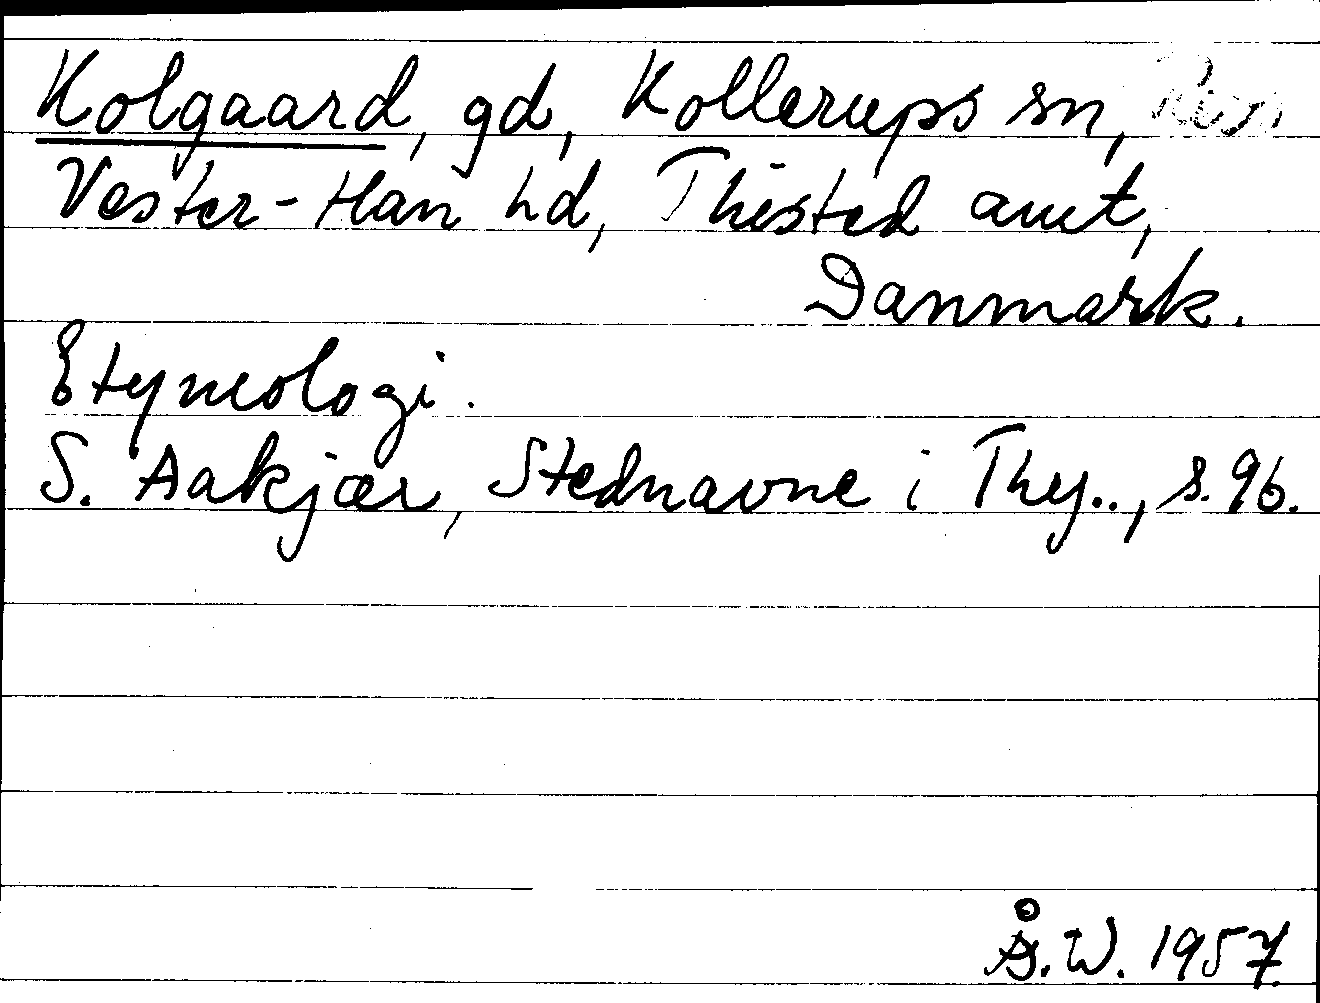 Kolgaard, gd, Kollerups sn,
Vester-Han hd, Thisted amt,
Danmark.
Etymologi.
S. Aakjær, Stednavne i Thy.., s. 96.
Å.W. 1957.